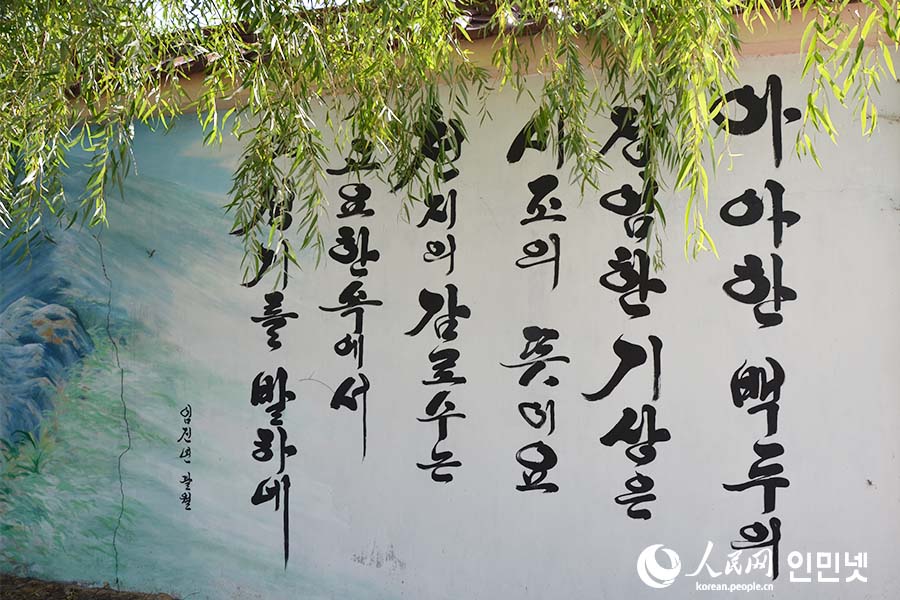 아아한 백두의
장엄한 기상은
시조의 뜻이요
천지의 감로수는
고요한 속에서
발하네
임진년 팔월
人民网 인민넷
korean.people.cn